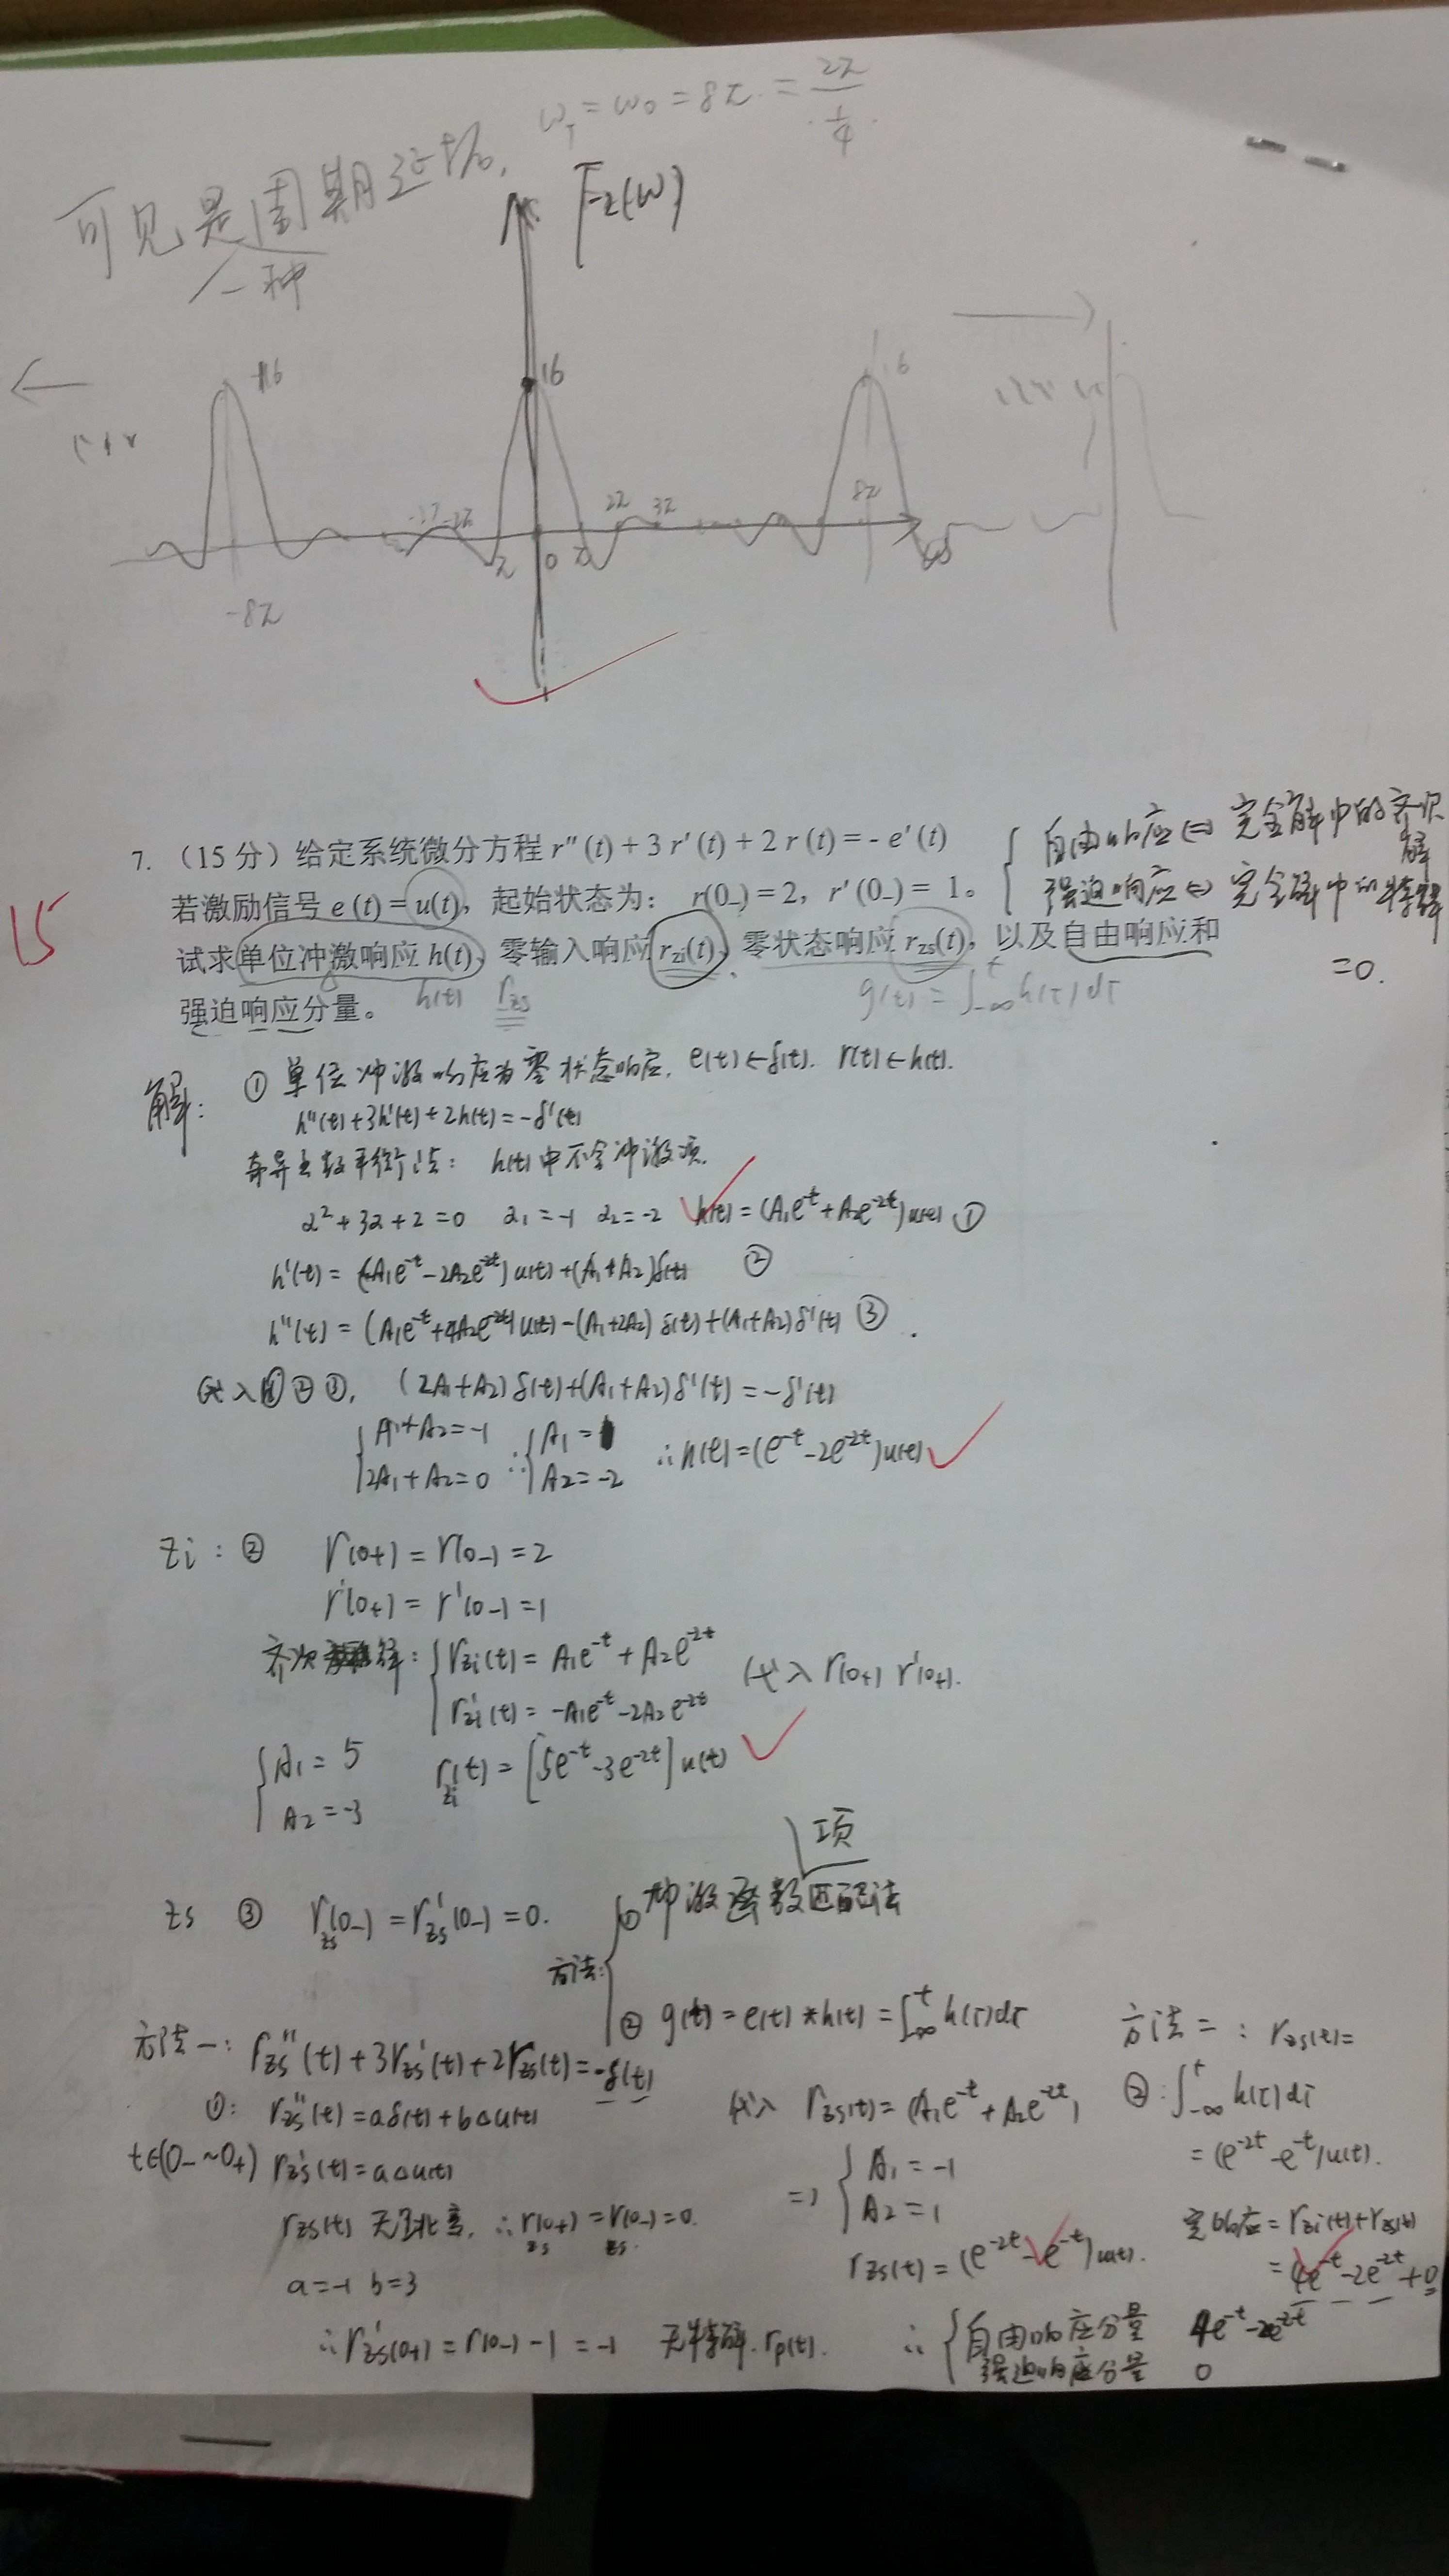 ω₁ = ω₀ = 8π = 2π / (1/4)
可见是周期延拓,
一种
F₂(ω)
16
16
16
-2π
2π 3π
8π
-π 0 π
ω
-8π
7. (15 分) 给定系统微分方程 r″(t) + 3 r′(t) + 2 r (t) = - e′(t)
若激励信号 e (t) = u(t), 起始状态为: r(0₋) = 2, r′(0₋) = 1。
试求单位冲激响应 h(t)、零输入响应 r_zi(t)、零状态响应 r_zs(t), 以及自由响应和
强迫响应分量。
自由响应⇔完全解中的齐次解
强迫响应⇔完全解中的特解
=0.
15
h(t) r_zs
g(t) = ∫_{-∞}^{t} h(τ)dτ
解: ① 单位冲激响应为零状态响应, e(t)←δ(t). r(t)←h(t).
h″(t)+3h′(t)+2h(t)=-δ′(t)
奇异函数平衡法: h(t)中不含冲激项.
α²+3α+2=0 α₁=-1 α₂=-2 h(t)=(A₁e^{-t}+A₂e^{-2t})u(t) ①
h′(t)=(-A₁e^{-t}-2A₂e^{-2t})u(t)+(A₁+A₂)δ(t) ②
h″(t)=(A₁e^{-t}+4A₂e^{-2t})u(t)-(A₁+2A₂)δ(t)+(A₁+A₂)δ′(t) ③
代入①②③, (2A₁+A₂)δ(t)+(A₁+A₂)δ′(t)=-δ′(t)
{A₁+A₂=-1 ∴{A₁=1 ∴h(t)=(e^{-t}-2e^{-2t})u(t)
2A₁+A₂=0 A₂=-2
zi: ② r(0₊)=r(0₋)=2
r′(0₊)=r′(0₋)=1
齐次解: {r_zi(t)=A₁e^{-t}+A₂e^{-2t} 代入r(0₊) r′(0₊).
r′_zi(t)=-A₁e^{-t}-2A₂e^{-2t}
{A₁=5 r_zi(t)=[5e^{-t}-3e^{-2t}]u(t)
A₂=-3
项
zs ③ r_zs(0₋)=r′_zs(0₋)=0.
方法:{① 冲激函数匹配法
② g(t)=e(t)*h(t)=∫_{-∞}^{t}h(τ)dτ
方法一: r″_zs(t)+3r′_zs(t)+2r_zs(t)=-δ(t)
①: r″_zs(t)=aδ(t)+bΔu(t)
t∈(0₋~0₊) r′_zs(t)=aΔu(t)
r_zs(t)无跳变, ∴r_zs(0₊)=r_zs(0₋)=0.
a=-1 b=3
∴r′_zs(0₊)=r(0₋)-1=-1 无特解.r_p(t).
代入 r_zs(t)=(A₁e^{-t}+A₂e^{-2t})
⇒{A₁=-1
A₂=1
r_zs(t)=(e^{-2t}-e^{-t})u(t).
方法二: r_zs(t)=
②:∫_{-∞}^{t}h(τ)dτ
=(e^{-2t}-e^{-t})u(t).
完响应=r_zi(t)+r_zs(t)
=4e^{-t}-2e^{-2t}+0
∴{自由响应分量 4e^{-t}-2e^{-2t}
强迫响应分量 0